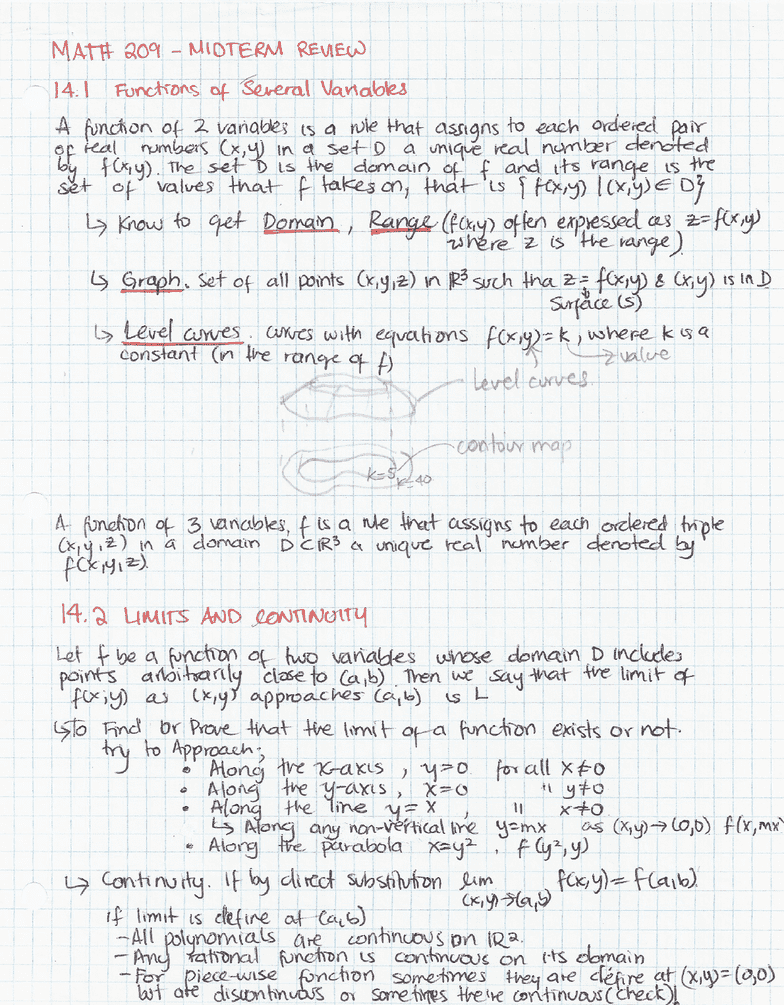 MATH 209 - MIDTERM REVIEW
14.1 Functions of Several Variables
A function of 2 variables is a rule that assigns to each ordered pair
of real numbers (x,y) in a set D a unique real number denoted
by f(x,y). The set D is the domain of f and its range is the
set of values that f takes on, that is { f(x,y) | (x,y) ∈ D}
↳ Know to get Domain, Range (f(x,y) often expressed as z=f(x,y)
where z is the range)
↳ Graph. Set of all points (x,y,z) in ℝ³ such tha z = f(x,y) & (x,y) is in D
Surface (S)
↳ Level curves. curves with equations f(x,y)=k, where k is a
constant (in the range of f)
z value
Level curves.
contour map
k=5
k=40
A function of 3 variables, f is a rule that assigns to each ordered triple
(x,y,z) in a domain D⊂ℝ³ a unique real number denoted by
f(x,y,z).
14.2 LIMITS AND CONTINUITY
Let f be a function of two variables whose domain D includes
points arbitrarily close to (a,b). Then we say that the limit of
f(x,y) as (x,y) approaches (a,b) is L
↳ To Find or Prove that the limit of a function exists or not.
try to Approach;
• Along the x-axis, y=0 for all x≠0
• Along the y-axis, x=0 " y≠0
• Along the line y=x, " x≠0
↳ Along any non-vertical line y=mx as (x,y)→(0,0) f(x,mx)
• Along the parabola x=y², f(y²,y)
↳ Continuity. If by direct substitution lim f(x,y)=f(a,b)
(x,y)→(a,b)
if limit is define at (a,b)
- All polynomials are continuous on ℝ².
- Any rational function is continuous on its domain
- For piece-wise function sometimes they are define at (x,y)=(0,0)
but are discontinuous or sometimes there continuous (check)!